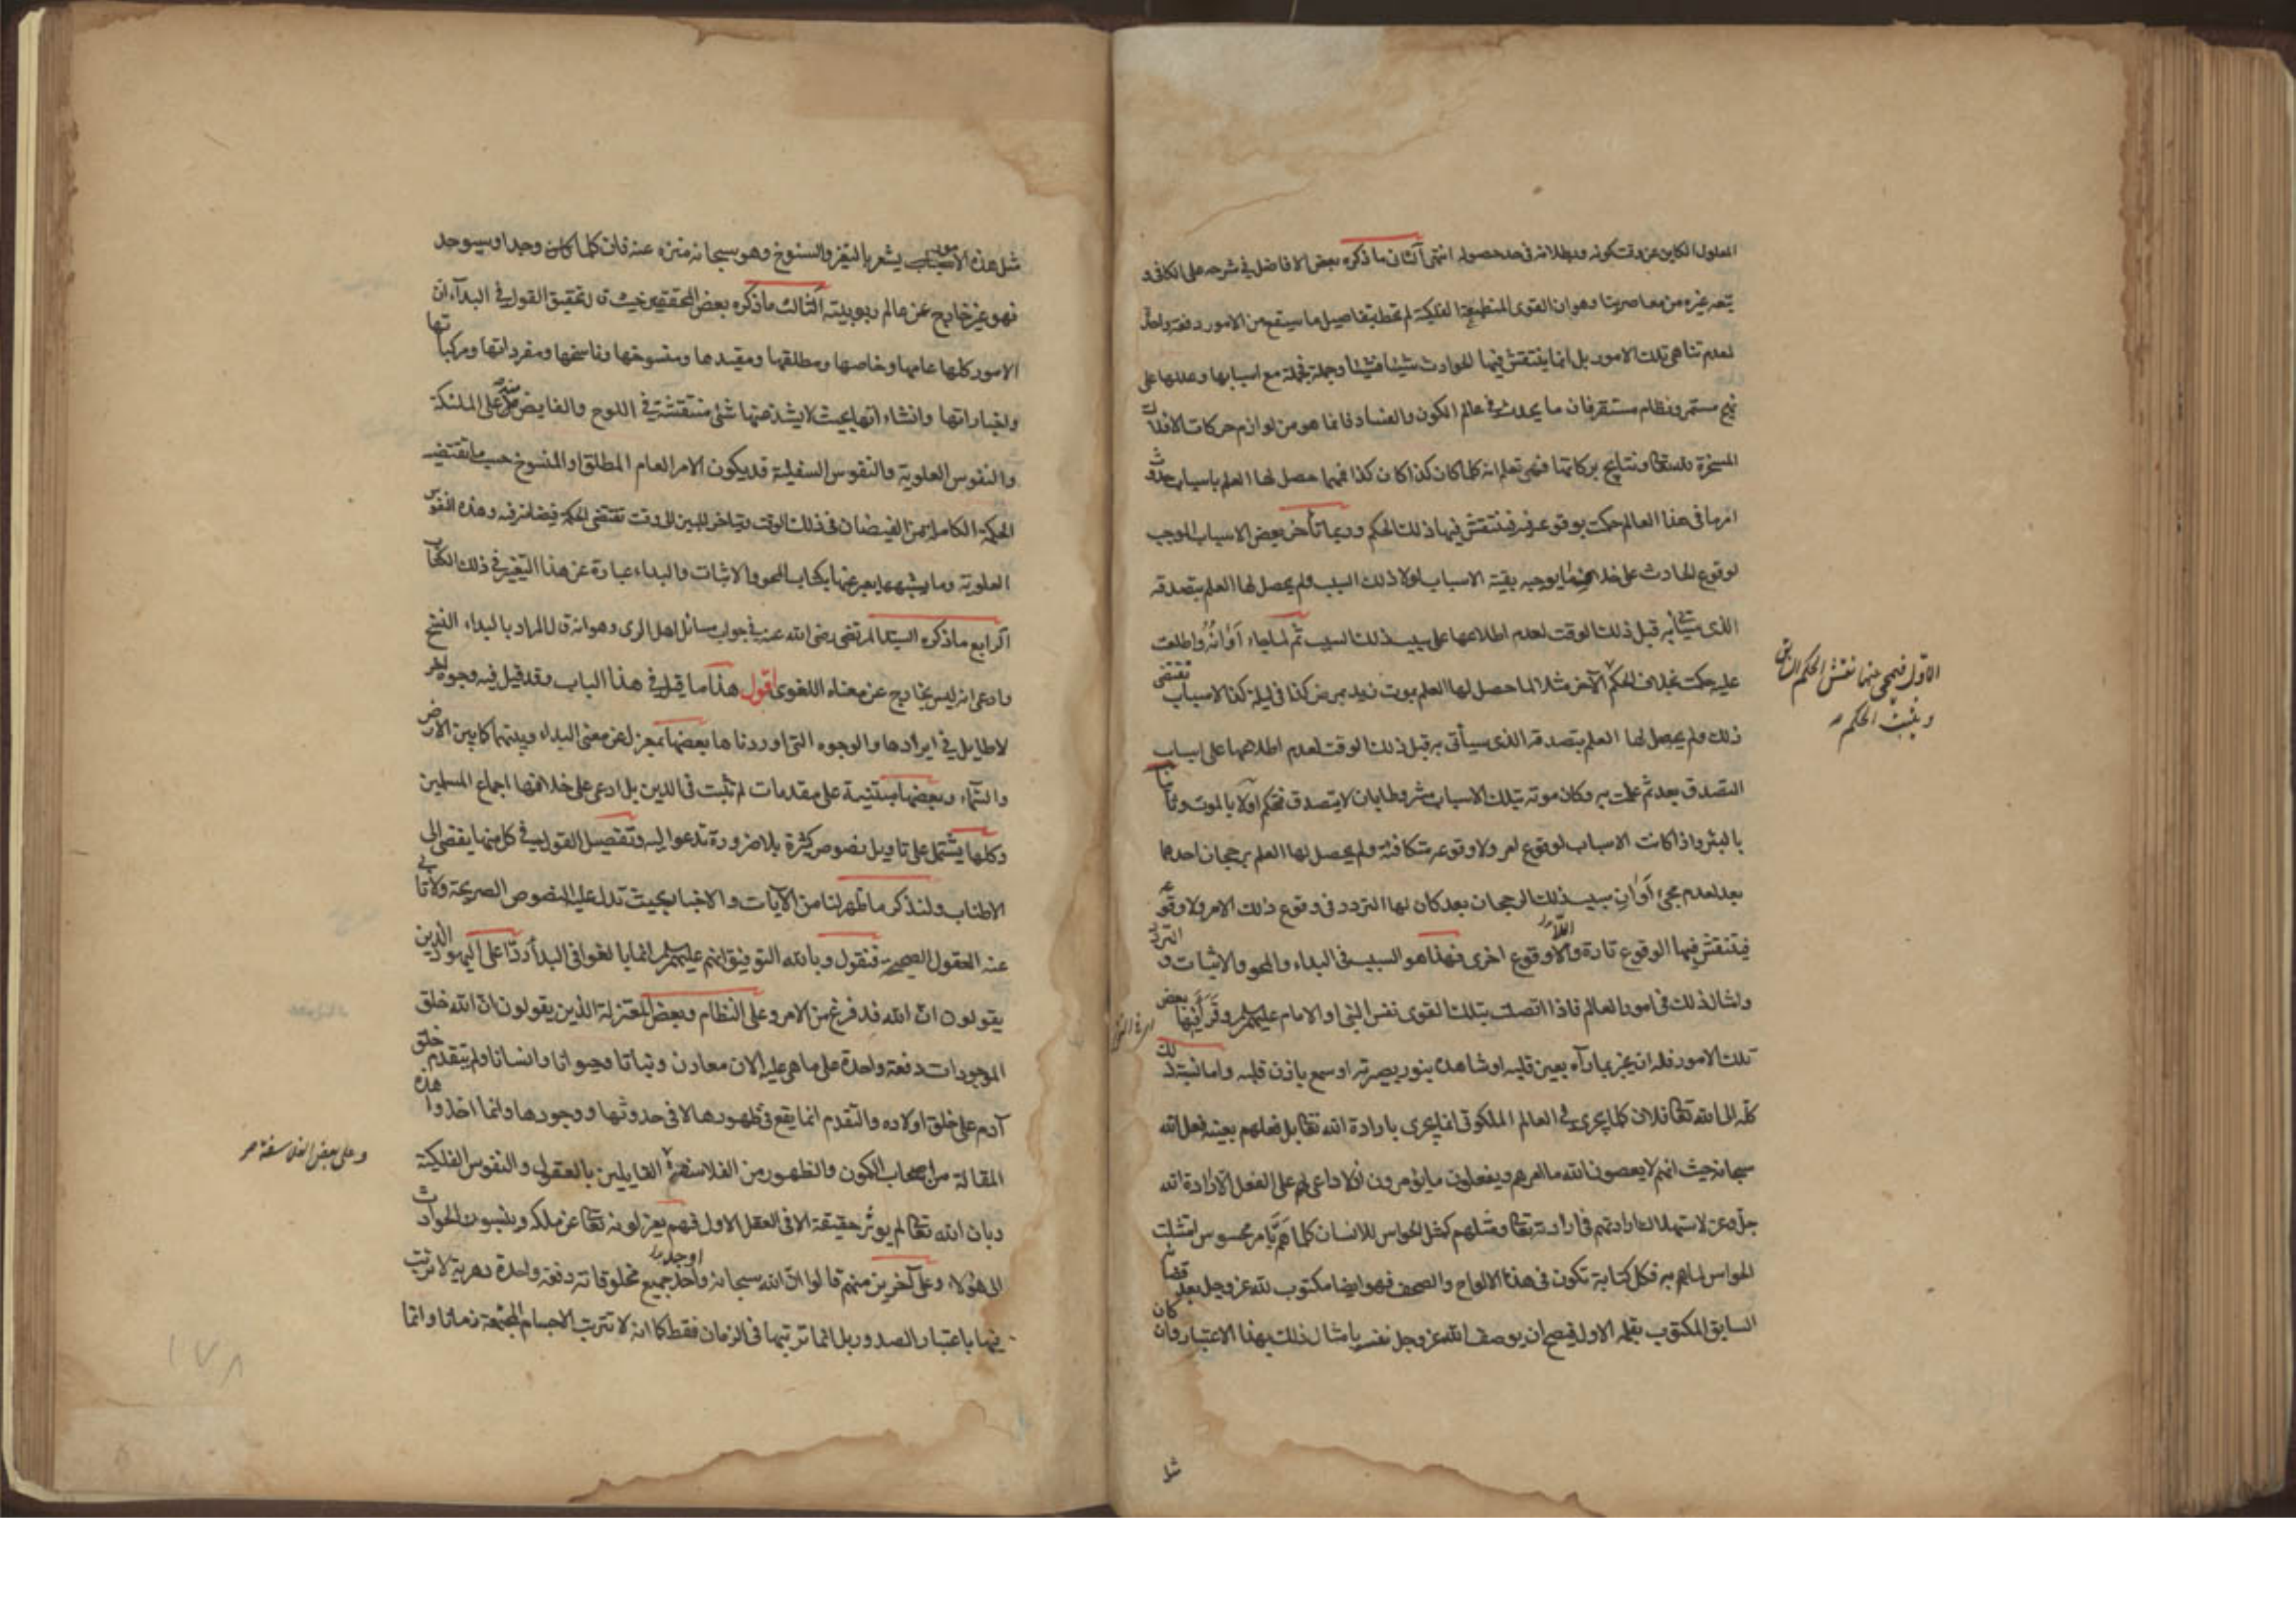 المعلول الكاين عن وقت كونه وبطلانه في حد حصوله انتهى الثاني ما ذكره بعض الافاضل في شرحه على الكافي و
تبعه غيره من معاصرينا وهو ان القوى المنطبعة الفلكية لم تحط بتفاصيل ما سيقع من الامور دفعة واحدة
لعدم تناهي تلك الامور بل انما ينتقش فيها الحوادث شيئا فشيئا وجملة فجملة مع اسبابها وعللها على
نهج مستمر ونظام مستقر فان ما يحدث في عالم الكون والفساد فانما هو من لوازم حركات الافلاك
المسخرة لله تعالى ونتايج بركاتها فهي تعلم انه كلما كان كذا كان كذا فمهما حصل لها العلم باسباب حدوث
امر ما في هذا العالم حكمت بوقوعه فيه فينتقش فيها ذلك الحكم وربما تأخر بعض الاسباب الموجب
لوقوع الحادث على خلاف ما يوجبه بقية الاسباب لولا ذلك السبب ولم يحصل لها العلم بتصدقه
الذي سيأتي به قبل ذلك الوقت لعدم اطلاعها على سبب ذلك السبب ثم لما جاء اوانه واطلعت
عليه حكمت بخلاف الحكم الآخر مثلا لما حصل لها العلم بموت زيد بمرض كذا في ليلة كذا لاسباب تقتضي
ذلك ولم يحصل لها العلم بتصدقه الذي سيأتي به قبل ذلك الوقت لعدم اطلاعها على اسباب
التصدق بعد ثم علمت به وكان موته بتلك الاسباب مشروطا بان لا يتصدق فتحكم اولا بالموت وثانيا
بالبرء واذا كانت الاسباب لوقوع امر ولا وقوعه متكافئة ولم يحصل لها العلم برجحان احدهما
بعد لعدم مجيء اوان سبب ذلك الرجحان بعد كان لها التردد في وقوع ذلك الامر ولا وقوعه
فينتقش فيها الوقوع تارة واللاوقوع اخرى فهذا هو السبب في البداء والمحو والاثبات والتردد
وامثال ذلك في امور العالم فاذا اتصلت بتلك القوى نفس النبي او الامام عليهم السلم وقرأ فيها بعض
تلك الامور فله ان يخبر بما رآه بعين قلبه او شاهده بنور بصيرته او سمع باذن قلبه واما نسبة ذلك
كله الى الله تعالى فلان كلما يجري في العالم الملكوتي انما يجري بارادة الله تعالى بل فعلهم بعينه فعل الله
سبحانه حيث انهم لا يعصون الله ما امرهم ويفعلون ما يؤمرون اذ لا داعي لهم على الفعل الا ارادة الله
جل وعز لاستهلاك ارادتهم في ارادته تعالى ومثلهم كمثل الحواس للانسان كلما هم بامر محسوس امتثلت
الحواس لما هم به فكل كتابة تكون في هذه الالواح والصحف فهو ايضا مكتوب لله عز وجل بعد قضائه
السابق المكتوب بقلمه الاول فيصح ان يوصف الله عز وجل نفسه بامثال ذلك بهذا الاعتبار وان كان
الاول فيمحى عنها نقش الحكم السابق
ويثبت الحكم
مثل هذه الامور يشعر بالتغير والسنوح وهو سبحانه منزه عنه فان كلما كان وجد او سيوجد
فهو غير خارج عن عالم ربوبيته الثالث ما ذكره بعض المحققين حيث ق لتحقيق القول في البداء ان
الامور كلها عامها وخاصها ومطلقها ومقيدها ومنسوخها وناسخها ومفرداتها ومركباتها
واخباراتها وانشاءاتها بحيث لا يشذ عنها شئ منتقشة في اللوح والفايض منه على الملئكة
والنفوس العلوية والنفوس السفلية قد يكون الامر العام المطلق او المنسوخ حسب ما تقتضيه
الحكمة الكاملة من الفيضان في ذلك الوقت ويتاخر المبين الى وقت تقتضي الحكمة فيضانه فيه وهذه النفوس
العلوية وما يشبهها يعبر عنها بكتاب المحو والاثبات والبداء عبارة عن هذا التغير في ذلك الكتاب
الرابع ما ذكره السيد المرتضى رضى الله عنه في جواب مسائل اهل الرى وهو انه ق المراد بالبداء النسخ
وادعى انه ليس بخارج عن معناه اللغوى اقول هذا ما قيل في هذا الباب وقد قيل فيه وجوه اخر
لا طايل في ايرادها والوجوه التي اوردناها بعضها بمعزل عن معنى البداء وبينهما كما بين الارض
والسماء وبعضها مبتنية على مقدمات لم تثبت في الدين بل ادعى على خلافها اجماع المسلمين
وكلها يشتمل على تاويل نصوص كثيرة بلا ضرورة تدعوا اليه وتفصيل القول في كل منها يفضي الى
الاطناب ولنذكر ما ظهر لنا من الآيات والاخبار بحيث تدل عليه النصوص الصريحة ولا تأبى
عنه العقول الصحيحة فنقول وبالله التوفيق انهم عليهم السلم انما بالغوا في البداء ردا على اليهود الذين
يقولون ان الله قد فرغ من الامر وعلى النظام وبعض المعتزلة الذين يقولون ان الله خلق
الموجودات دفعة واحدة على ما هي عليه الان معادن ونباتا وحيوانا وانسانا ولم يتقدم خلق
آدم على خلق اولاده والتقدم انما يقع في ظهورها لا في حدوثها ووجودها وانما اخذوا هذه
المقالة من اصحاب الكون والظهور من الفلاسفة القايلين بالعقول والنفوس الفلكية
وبان الله تعالى لم يوثر حقيقة الا في العقل الاول فهم يعزلونه تعالى عن ملكه وينسبون الحوادث
الى هؤلاء وعلى آخرين منهم قالوا ان الله سبحانه اوجد جميع مخلوقاته دفعة واحدة دهرية لا ترتب
فيها باعتبار الصدور بل انما ترتبها في الزمان فقط كما انه لا تترتب الاجسام المجتمعة زمانا وانما
وعلى بعض الفلاسفة
١٧٨